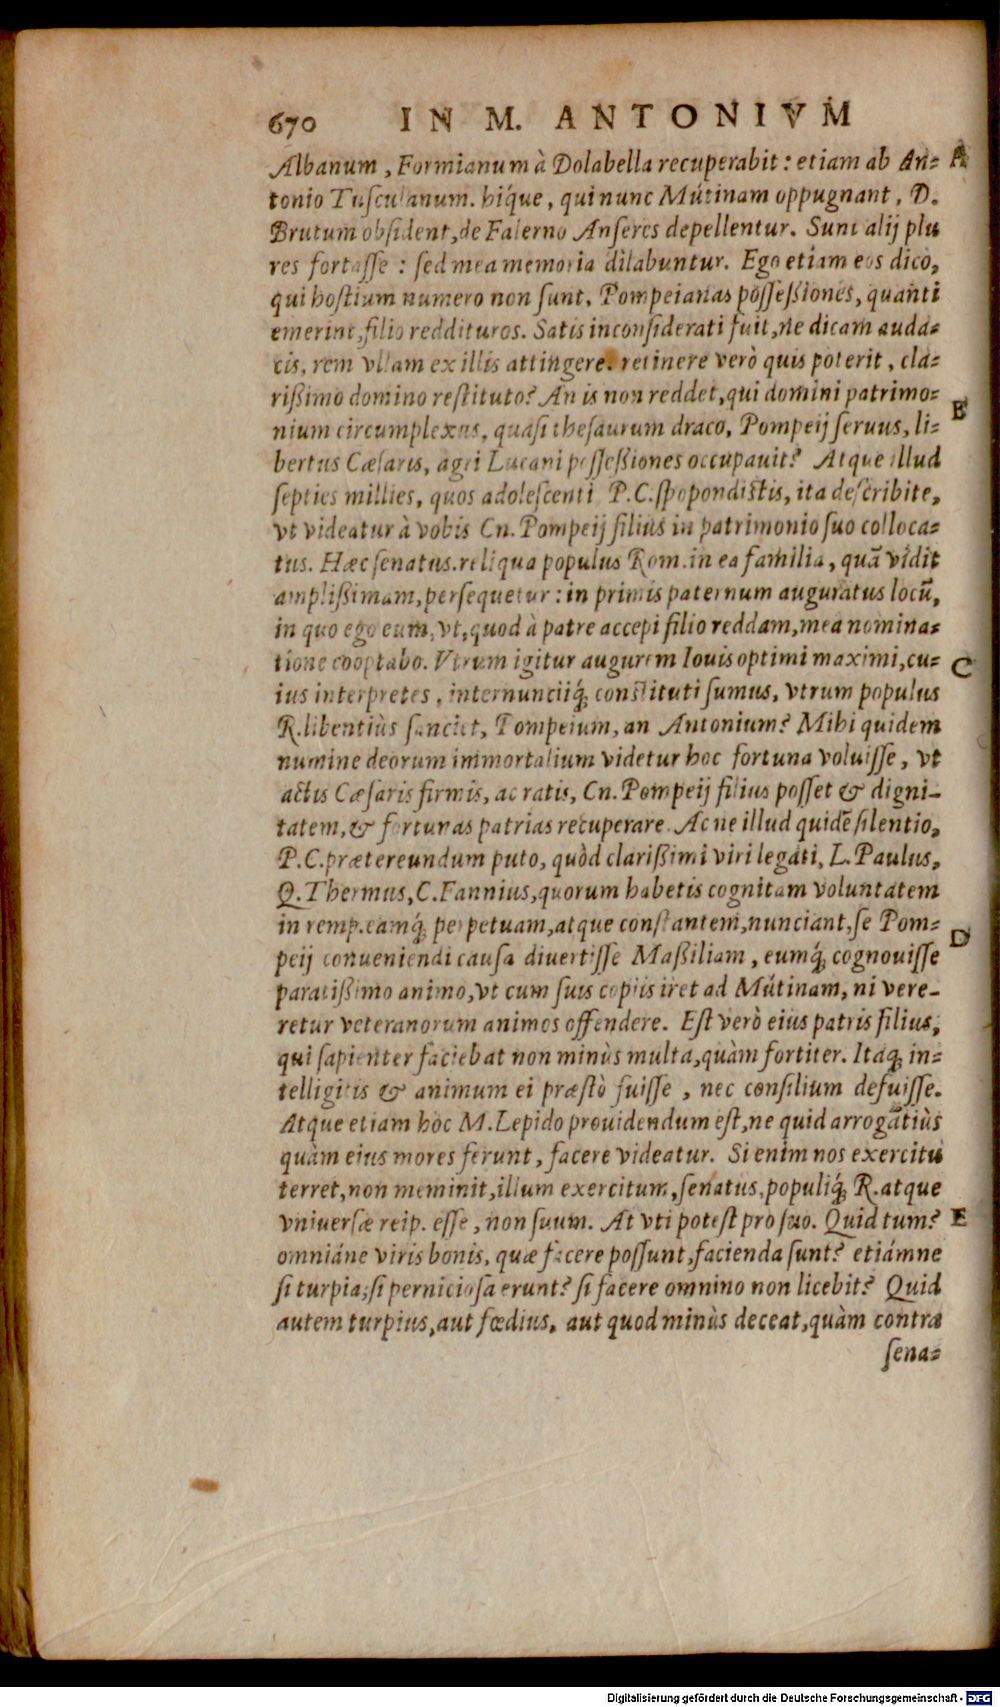 670 IN M. ANTONIVM
Albanum, Formianum à Dolabella recuperabit: etiam ab An- A
tonio Tusculanum. hiq́ue, qui nunc Mutinam oppugnant, D.
Brutum obsident, de Falerno Anseres depellentur. Sunt alij plu
res fortasse: sed mea memoria dilabuntur. Ego etiam eos dico,
qui hostium numero non sunt, Pompeianas possessiones, quanti
emerint, filio reddituros. Satis inconsiderati fuit, ne dicam auda-
cis, rem vllam ex illis attingere. retinere verò quis poterit, cla-
rißimo domino restituto? An is non reddet, qui domini patrimo- B
nium circumplexus, quasi thesaurum draco, Pompeij seruus, li-
bertus Cæsaris, agri Lucani possessiones occupauit? Atque illud
septies millies, quos adolescenti, P.C. spopondistis, ita describite,
vt videatur à vobis Cn. Pompeij filius in patrimonio suo colloca-
tus. Hæc senatus. reliqua populus Rom. in ea familia, quã vidit
amplißimam, persequetur: in primis paternum auguratus locũ,
in quo ego eum, vt, quod à patre accepi filio reddam, mea nomina-
tione cooptabo. Vtrum igitur augurem Iouis optimi maximi, cu- C
ius interpretes, internunciiq́; constituti sumus, vtrum populus
R. libentiùs sanciet, Pompeium, an Antonium? Mihi quidem
numine deorum immortalium videtur hoc fortuna voluisse, vt
actis Cæsaris firmis, ac ratis, Cn. Pompeij filius posset & digni-
tatem, & fortunas patrias recuperare. Ac ne illud quidẽ silentio,
P.C. prætereundum puto, quòd clarißimi viri legati, L. Paulus,
Q. Thermus, C. Fannius, quorum habetis cognitam voluntatem
in remp. eamq́; perpetuam, atque constantem, nunciant, se Pom- D
peij conueniendi causa divertisse Maßiliam, eumq́; cognouisse
paratißimo animo, vt cum suis copiis iret ad Mutinam, ni vere-
retur veteranorum animos offendere. Est verò eius patris filius,
qui sapienter faciebat non minùs multa, quàm fortiter. Itaq; in-
telligitis & animum ei præstò fuisse, nec consilium defuisse.
Atque etiam hoc M. Lepido prouidendum est, ne quid arrogãtiùs
quàm eius mores ferunt, facere videatur. Si enim nos exercitu
terret, non meminit, illum exercitum, senatus, populiq́; R. atque
vniuersæ reip. esse, non suum. At vti potest pro suo. Quid tum? E
omniáne viris bonis, quæ facere possunt, facienda sunt? etiámne
si turpia; si perniciosa erunt? si facere omnino non licebit? Quid
autem turpius, aut fœdius, aut quod minùs deceat, quàm contra
sena-
Digitalisierung gefördert durch die Deutsche Forschungsgemeinschaft - DFG